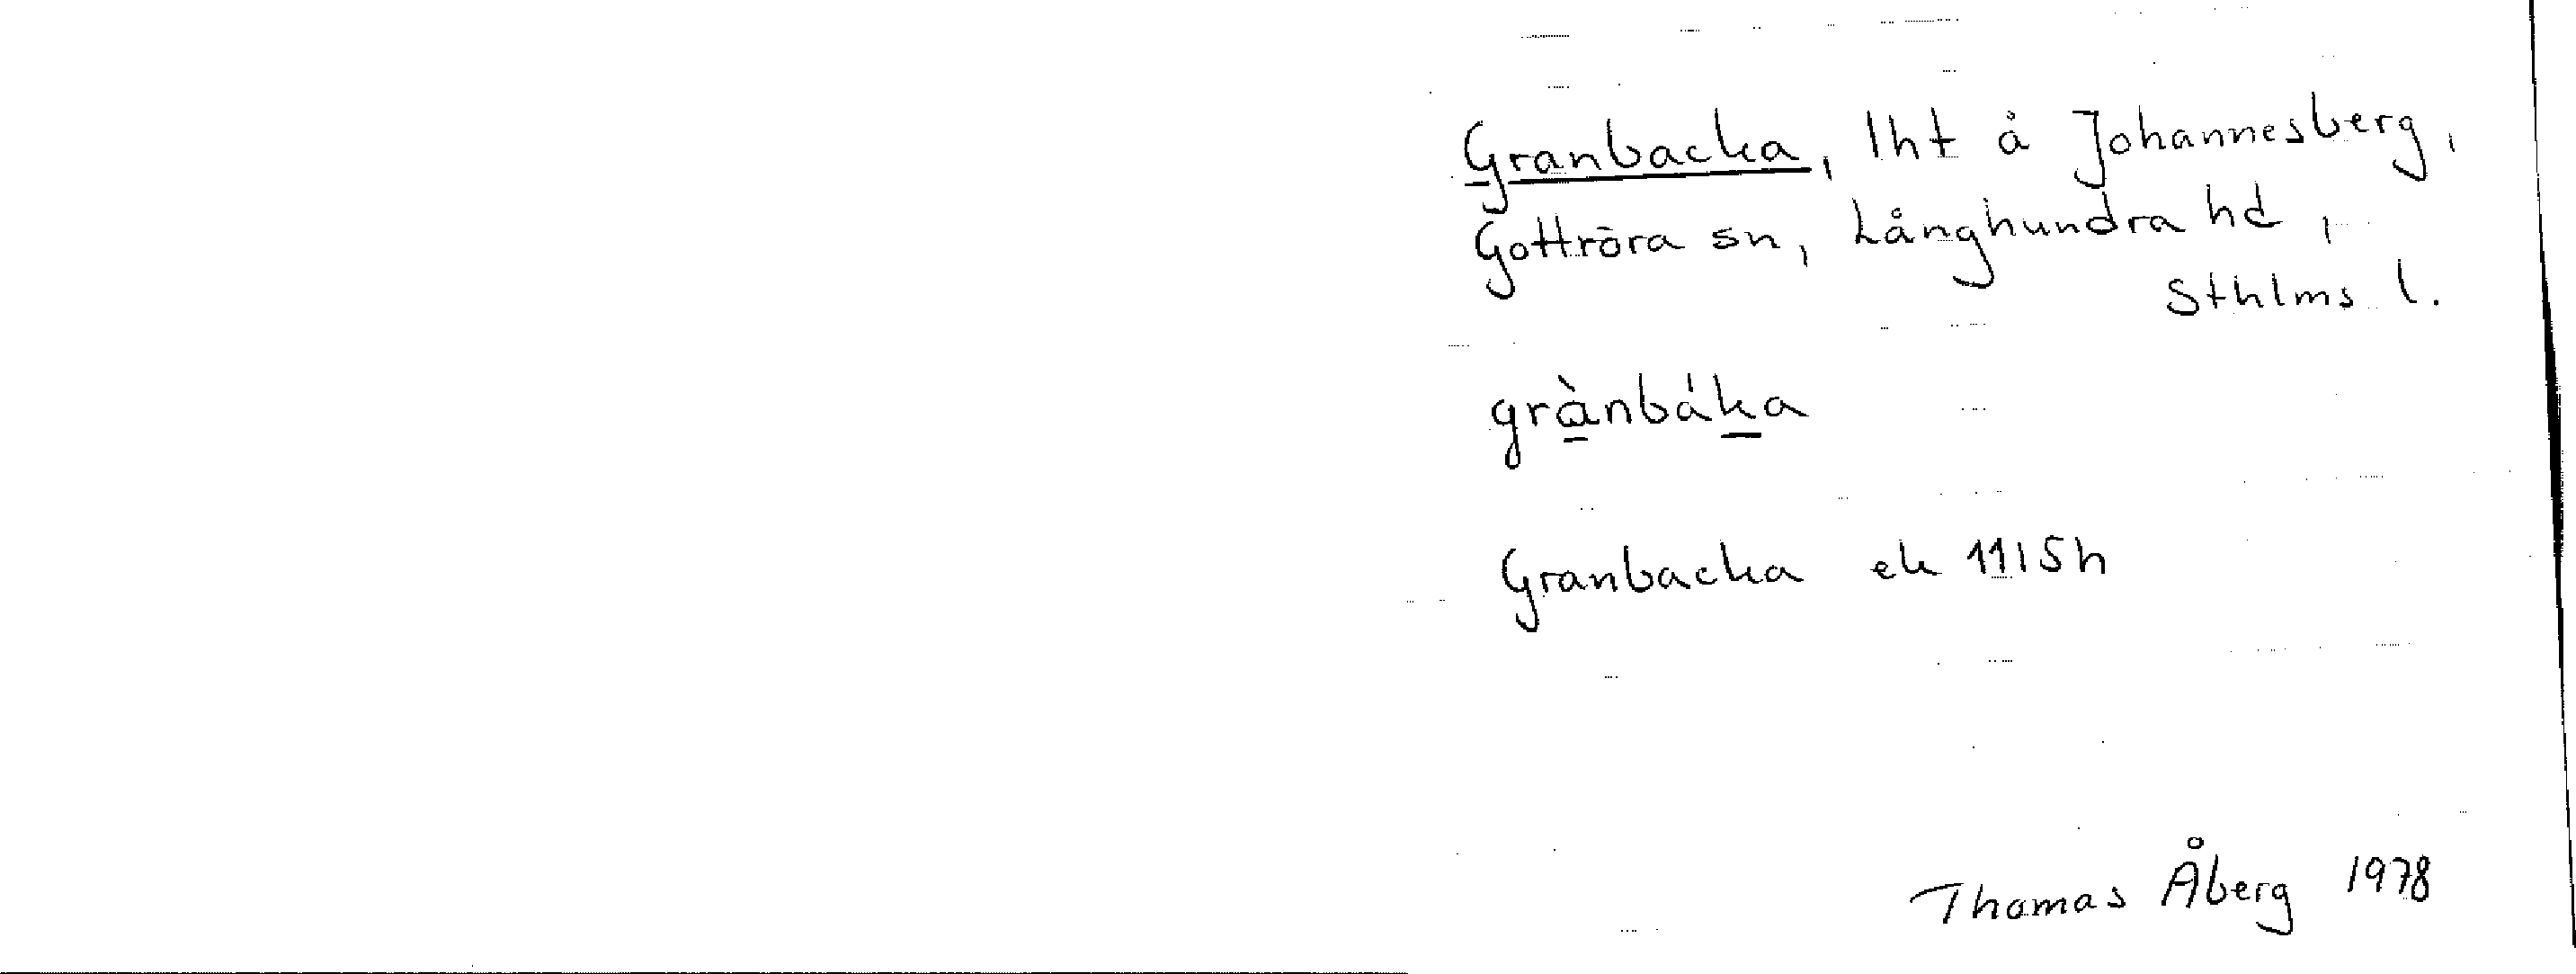 Granbacka, lht å Johannesberg,
Gottröra sn, Långhundra hd,
Sthlms l.
grànbáka
Granbacka ek 11I5h
Thomas Åberg 1978